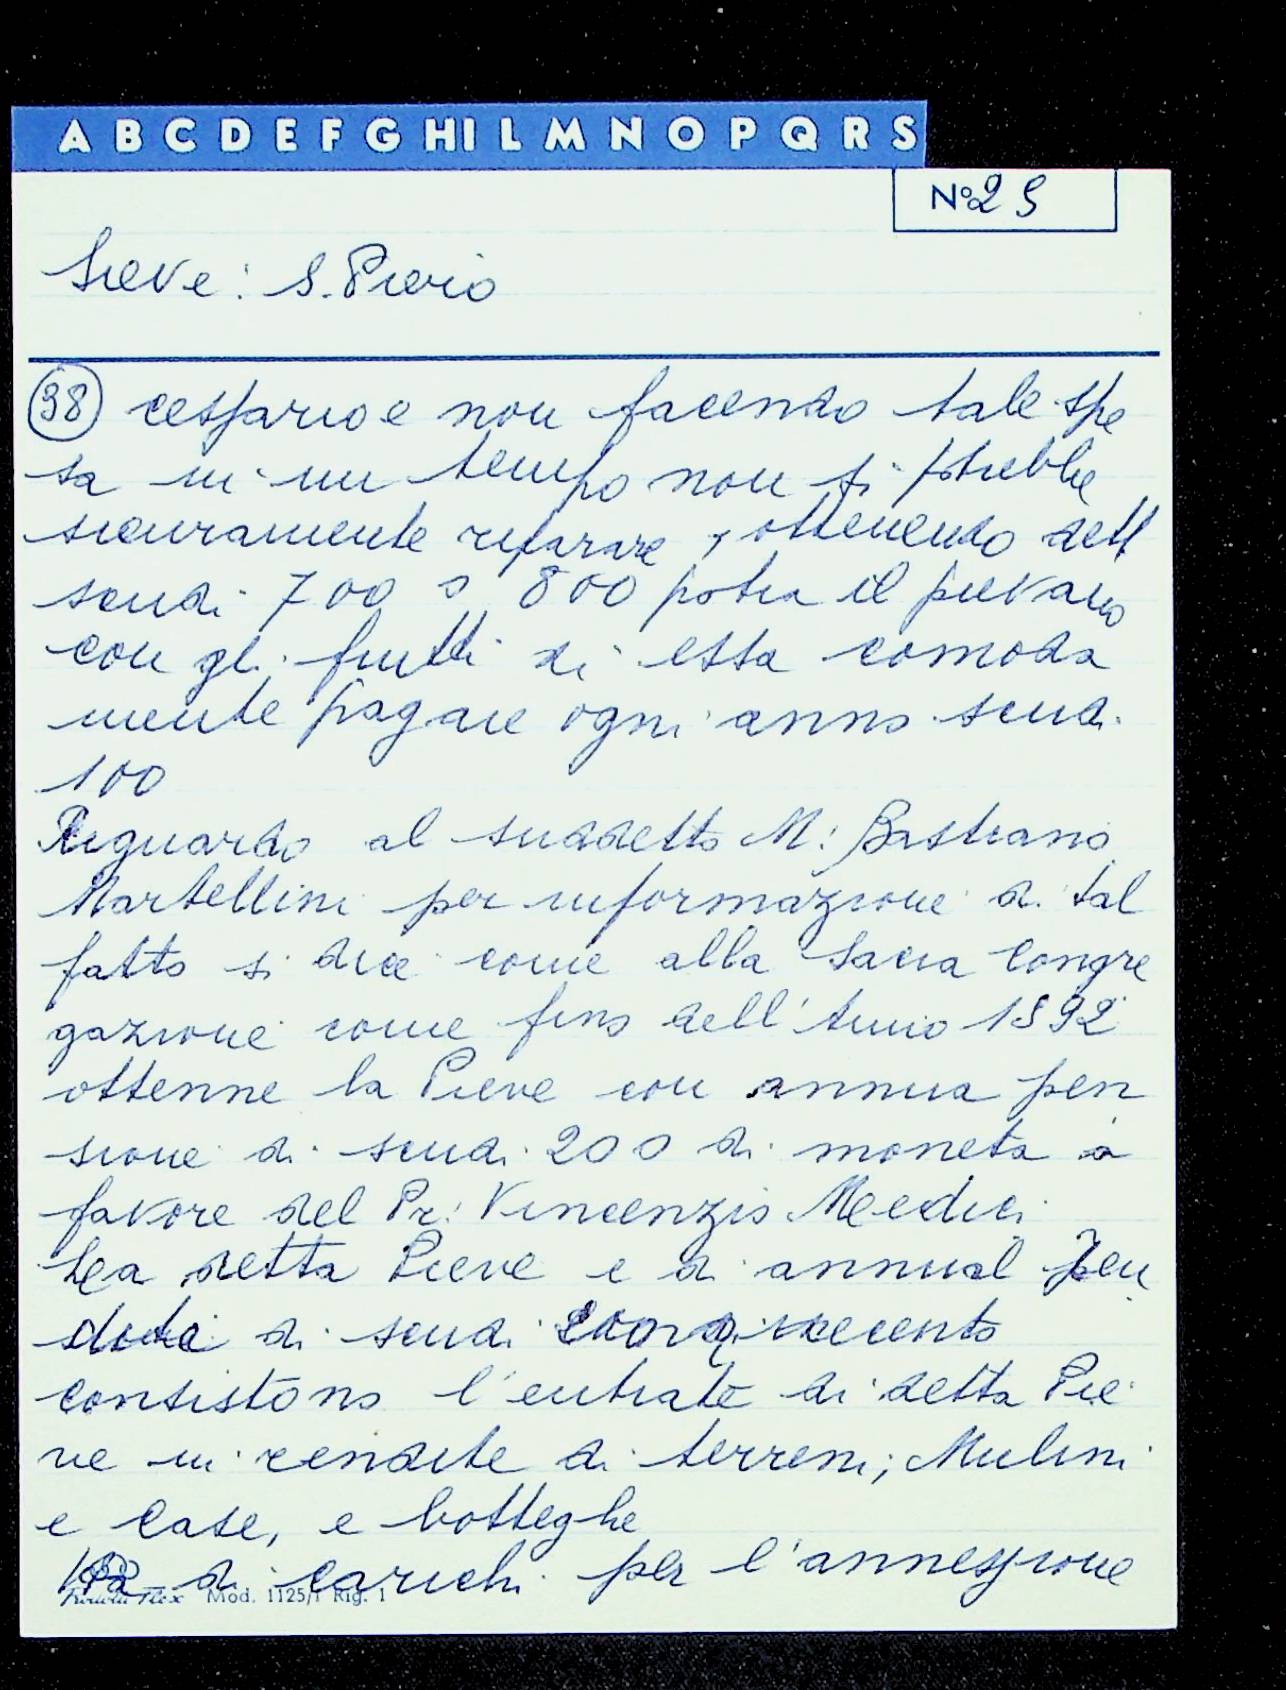 A B C D E F G HI L M N O P Q R S
N° 25
Sieve: S. Piero
38 cessario e non facendo tale spe
sa in un tempo non si potrebbe
sicuramente riparare, ottenendo detti
scudi 700 o 800 potra il pievano
con gli frutti di essa comoda
mente pagare ogni anno scudi
100
Riguardo al suddetto M: Bastiano
Martellini per informazione di tal
fatto si dice come alla Sacra Congre
gazione come fino dell'Anno 1592
ottenne la Pieve con annua pen
sione di scudi 200 di moneta a
favore del Pr: Vincenzio Medici
La detta Pieve e di annual
di scudi
consistono l'entrate di detta Pie
ve in rendite di terreni, Mulini
e Case, e botteghe
di carichi per l'annessione
Mod. 1125/1 Rig. 1